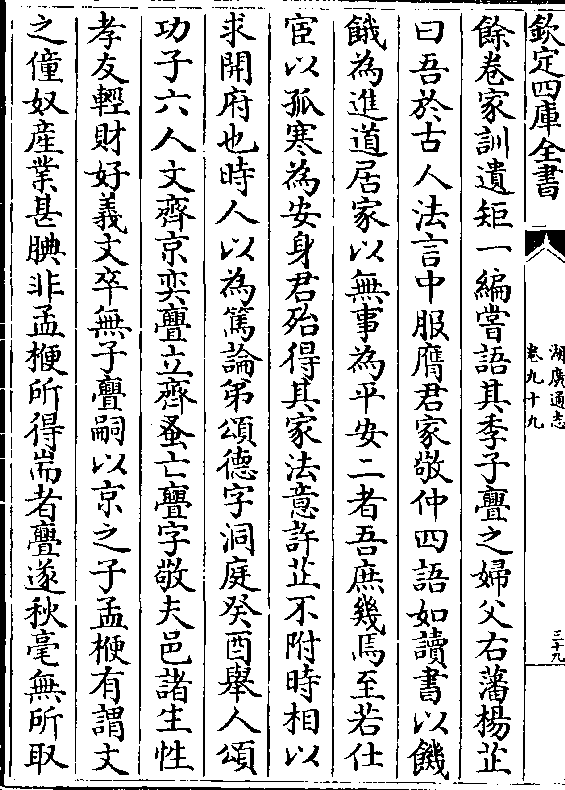 欽定四庫全書
湖廣通志
卷九十九
三十九
餘卷家訓遺矩一編嘗語其季子亹之婦父右藩楊芷
曰吾於古人法言中服膺君家敬仲四語如讀書以饑
餓為進道居家以無事為平安二者吾庶幾焉至若仕
宦以孤寒為安身君殆得其家法意許芷不附時相以
求開府也時人以為篤論弟頌德字洞庭癸酉舉人頌
功子六人文齊京奕亹立齊蚤亡亹字敬夫邑諸生性
孝友輕財好義文卒無子亹嗣以京之子孟楩有謂文
之僮奴産業甚腆非孟楩所得耑者亹遂秋毫無所取